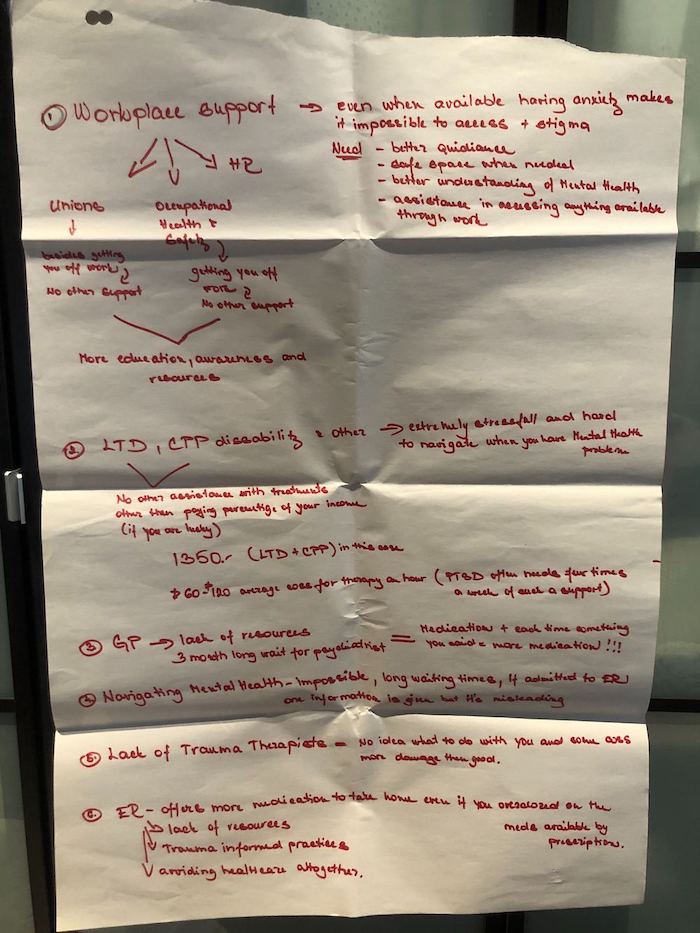 ① Workplace support → even when available having anxiety makes
it impossible to access + stigma
Need - better guidiance
- safe space when needed
- better understanding of Mental Health
- assistance in accessing anything available
through work
HR
Unions
↓
besides getting
you off work
No other support
Occupational
Health &
Safety
getting you off
work
No other support
More education, awareness and
resources
② LTD, CPP dissability & other → extremely stressfull and hard
to navigate when you have Mental Health
problem
No other assistance with treatments
other then paying percentige of your income
(if you are lucky)
1350.- (LTD + CPP) in this case
$60-$120 average cost for therapy an hour (PTSD often needs few times
a week of such a support)
③ GP → lack of resources
3 month long wait for psychiatrist
= Medication + each time something
you said = more medication !!!
④ Navigating Mental Health - impossible, long waiting times, if admitted to ER
one information is given but it's misleading
⑤ Lack of Trauma Therapists = No idea what to do with you and some
more damage then good.
⑥ ER - offers more medication to take home even if you overdozed on the
meds available by
prescription.
→ lack of resources
Trauma informed practices
avoiding healthcare alltogether.